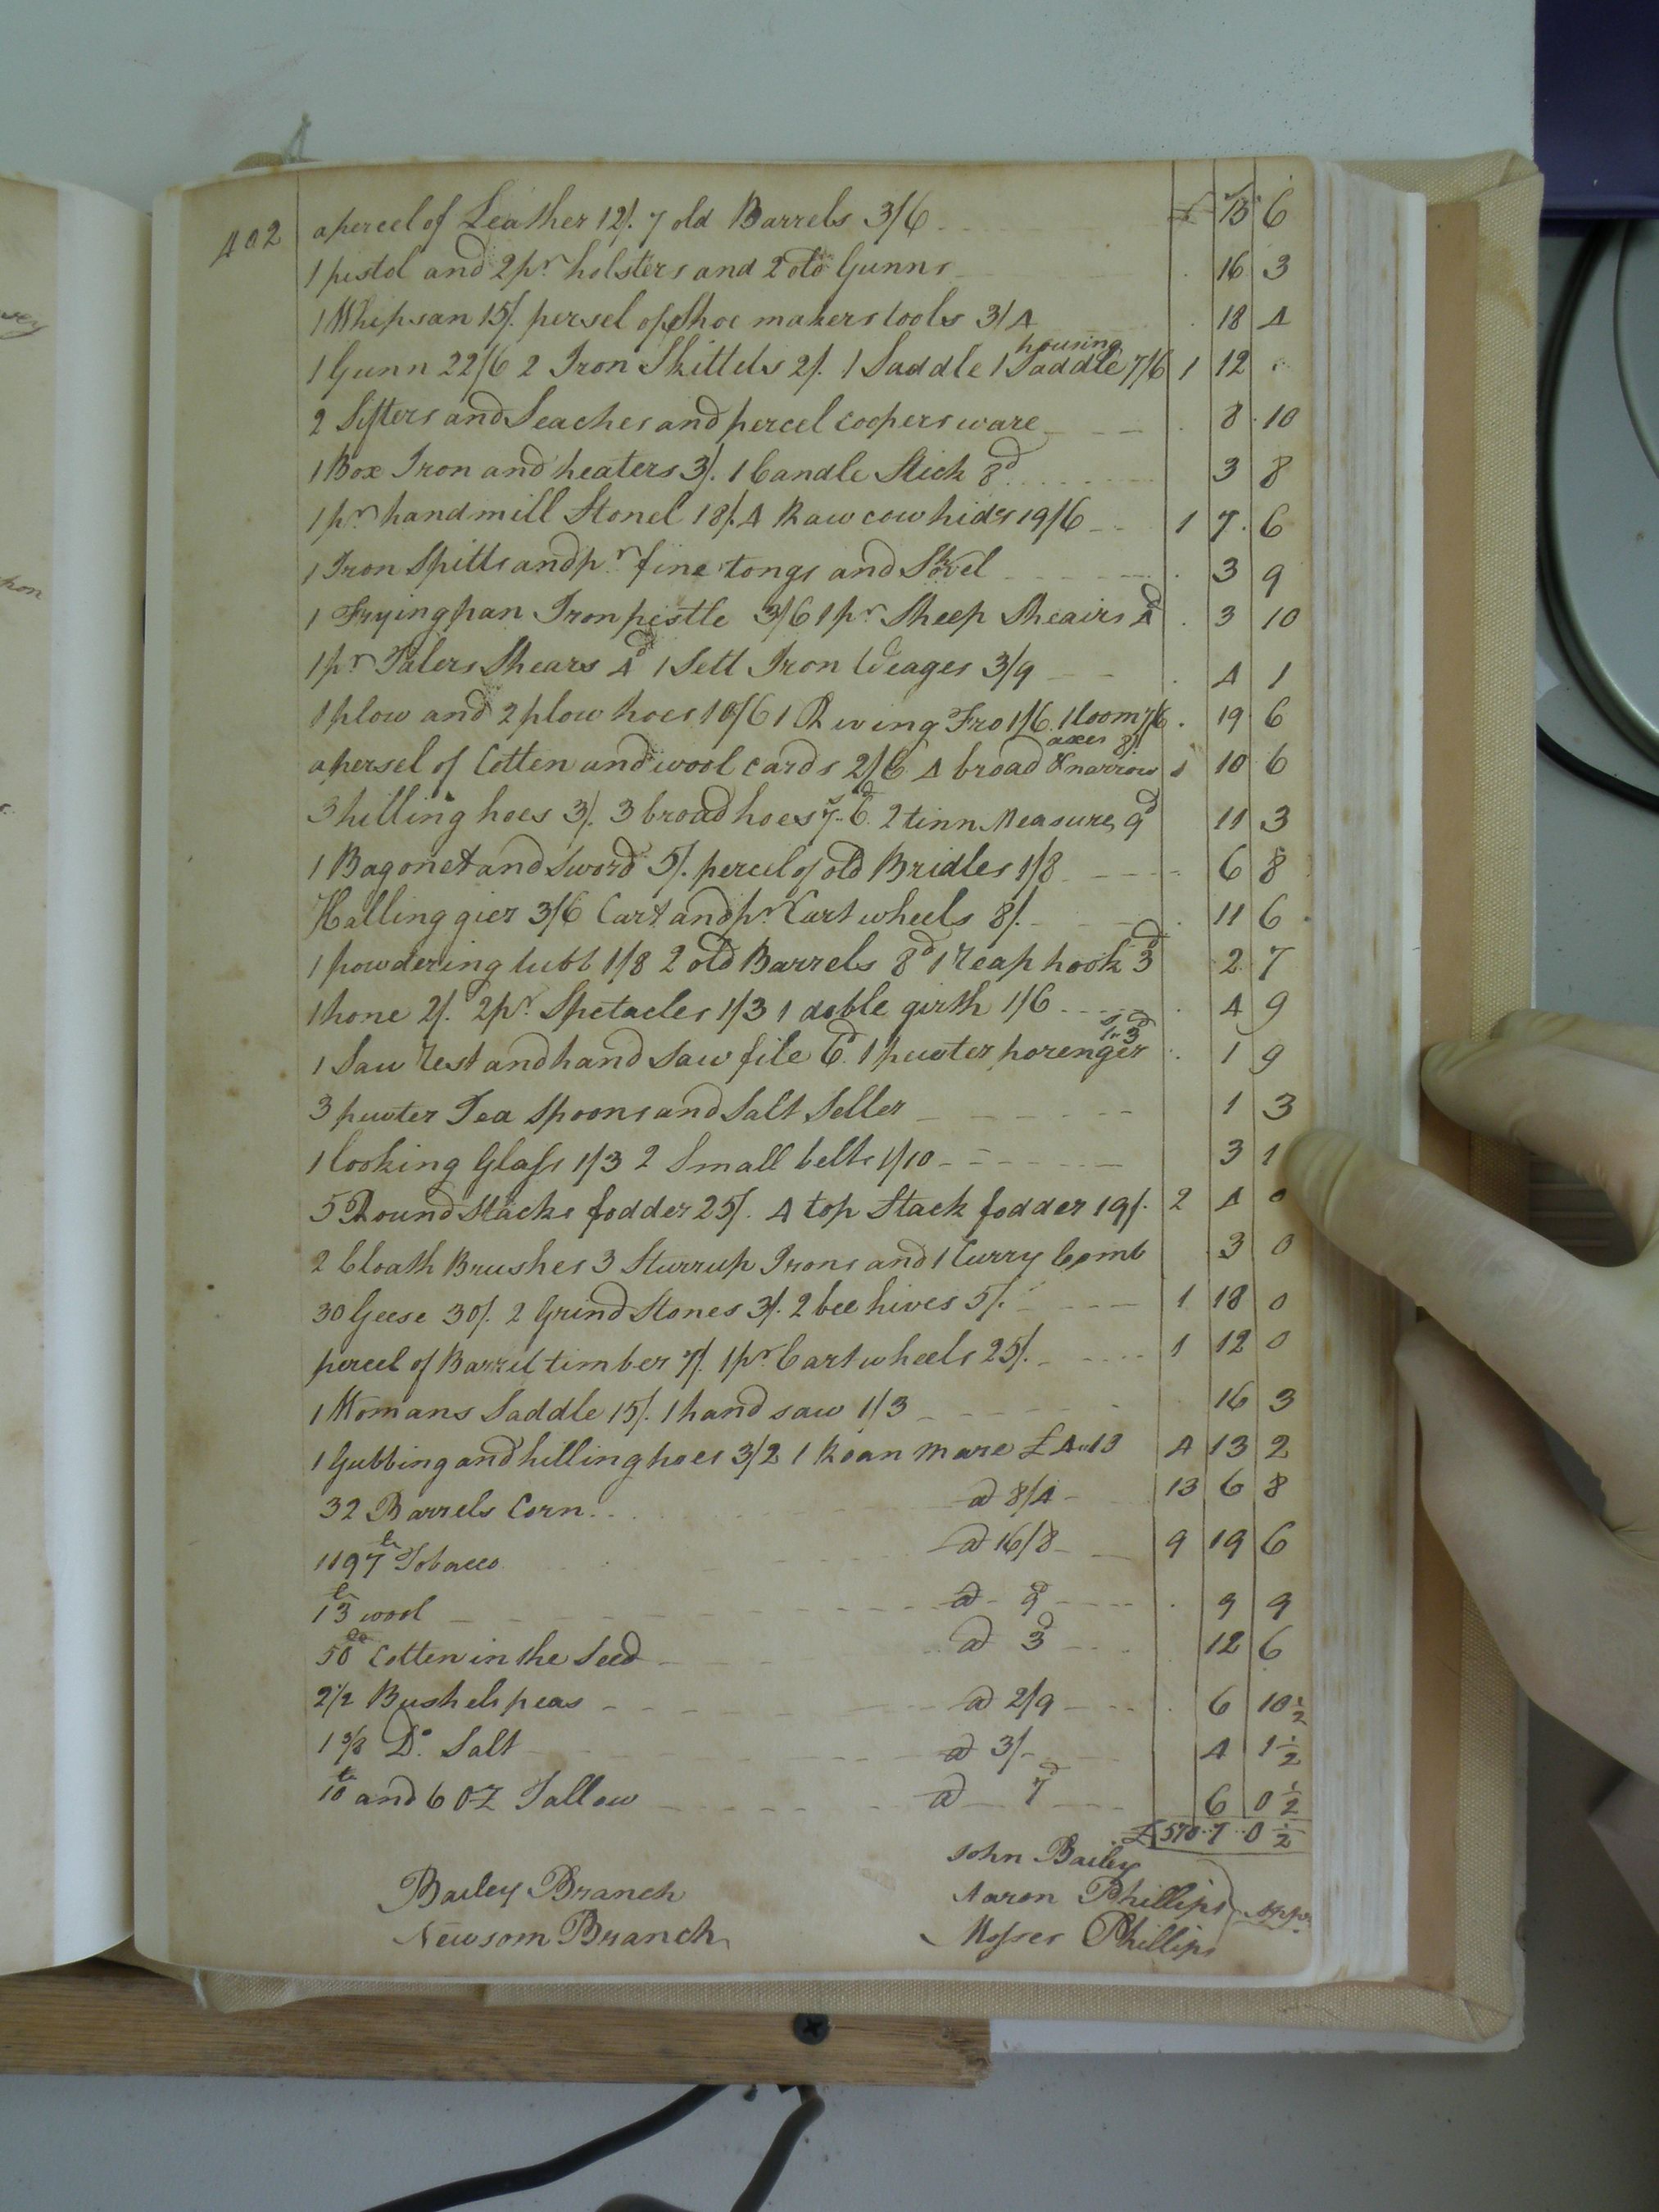 402
a percel of Leather 12/. 7 old Barrels 3/6 £ 15 6
1 pistol and 2 pr holsters and 2 old Gunns 16 3
1 Whipsaw 15/. persel of Shoe makers tools 3/4 18 4
housing
1 Gunn 22/6 2 Iron Skittels 2/. 1 Saddle 1 Saddle 7/6 1 12
2 Sifters and Seaches and percel coopers ware 8 10
1 Box Iron and heaters 3/. 1 Candle Stick 8d 3 8
1 pr hand mill Stonel 18/. 4 Raw cow hids 19/6 1 7 6
1 Iron Spitts and pr fine tongs and Shovel 3 9
1 Frying pan Iron pestle 3/6 1 pr Sheep Sheairs 4d 3 10
1 pr Talers Shears 4d 1 Sett Iron Weages 3/9 4 1
1 plow and 2 plow hoes 10/6 1 Riving Fro 1/6. 1 loom 7/6 19 6
axes 8/.
a persel of Cotten and wool cards 2/6 4 broad & narrow 1 10 6
3 hilling hoes 3/. 3 broad hoes 7s 6d. 2 tinn Measures 9d 11 3
1 Bagonet and Sword 5/. percel of old Bridles 1/8 6 8
Halling gier 3/6 Cart and pr Cart wheels 8/. 11 6
1 powdering tubb 1/8 2 old Barrels 8d 1 reap hook 3d 2 7
1 hone 2/. 2 pr. Spetacles 1/3 1 doble girth 1/6 4 9
1s 3d
1 Saw rest and hand Saw file 6d. 1 pewter porenger 1 9
3 pewter Tea Spoons and Salt Seller 1 3
1 looking Glass 1/3 2 Small belts 1/10 3 1
5 Round Stacks fodder 25/. 4 top Stack fodder 19/. 2 4 0
2 Cloath Brushes 3 Sturrup Irons and 1 Curry Comb 3 0
30 Geese 30/. 2 Grind Stones 3/. 2 bee hives 5/. 1 18 0
percel of Barril timber 7/. 1 pr Cart wheels 25/. 1 12 0
1 Womans Saddle 15/. 1 hand saw 1/3 16 3
1 Gubbing and hilling hoes 3/2 1 Roan mare £4..13 4 13 2
32 Barrels Corn @ 8/4 13 6 8
1197 lb Tobacco @ 16/8 9 19 6
13 lb wool @ 9d 9 9
50 lb Cotten in the Seed @ 3d 12 6
2 1/2 Bushels peas @ 2/9 6 10 1/2
1 3/8 Do. Salt @ 3/- 4 1 1/2
10 lb and 6 OZ Tallow @ 7d 6 0 1/2
£570..7..0 1/2
John Bailey
Bailey Branch Aaron Phillips Appr.
Newsom Branch Mosses Phillips